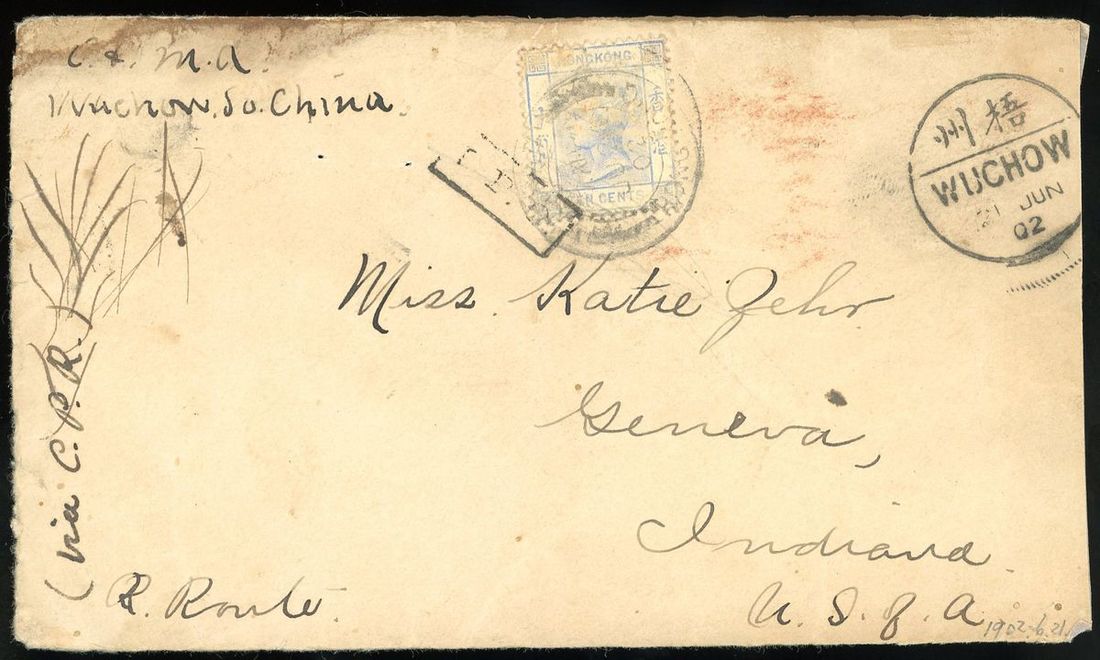 C. & M. A.
Wuchow. So. China.
HONGKONG
TEN CENTS
州梧
WUCHOW
21 JUN
02
Miss. Katie Zehr.
Geneva,
Indiana.
U. S. of A.
(via C. P. R.)
R. Route.
1902-6.21.